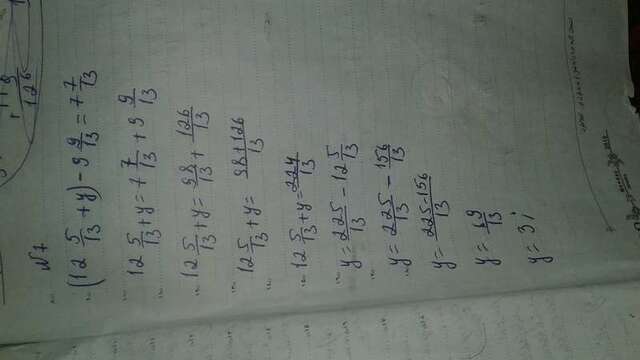 N 7
(12 5/13 + y) - 9 9/13 = 7 7/13
12 5/13 + y = 7 7/13 + 9 9/13
12 5/13 + y = 98/13 + 126/13
12 5/13 + y = 98+126/13
12 5/13 + y = 224/13
y = 225/13 - 12 5/13
y = 225/13 - 156/13
y = 225-156/13
y = 69/13
126